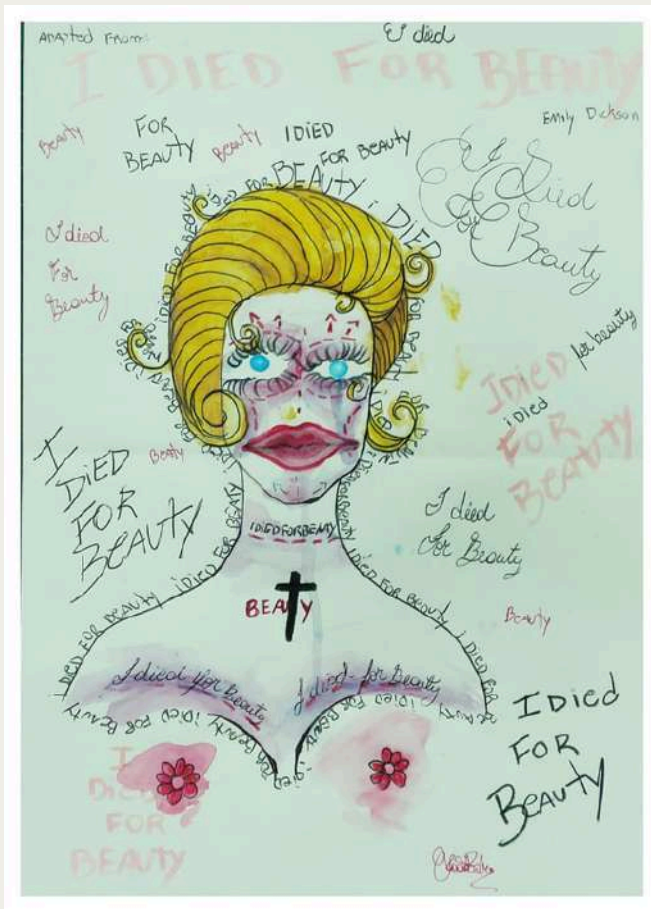 ADApted From:
I died
I DIED FOR BEAUTY
Emily Dickson
Beauty
FOR
BEAUTY
Beauty
I DiED
FOR BEAUTY
I Died
For Beauty
iDiED FOR BEAUTY iDiED FOR BEAUTY i DiED
FOR BEAUTY
I died
For
Beauty
for beauty
I Died
FOR
BEAUTY
i DiED
I
DiED
FOR
BEAUTY
Beauty
I died
For Beauty
IDIEDFORBEAUTY
BEAUTY
Beauty
iDIED FOR BEAUTY iDIED FOR BEATY
iDiED FOR BEAUTY i DIED FOR BEAUTY
I died for Beauty
I died for Beauty
BEAUTY iDiED FOR BEAUTY iDiED FOR BEAUTY
iDIED FOR BEAUTY iDIED FOR BEAUTY
I Died
FOR
BEAUTY
I
DIED
FOR
BEAUTY